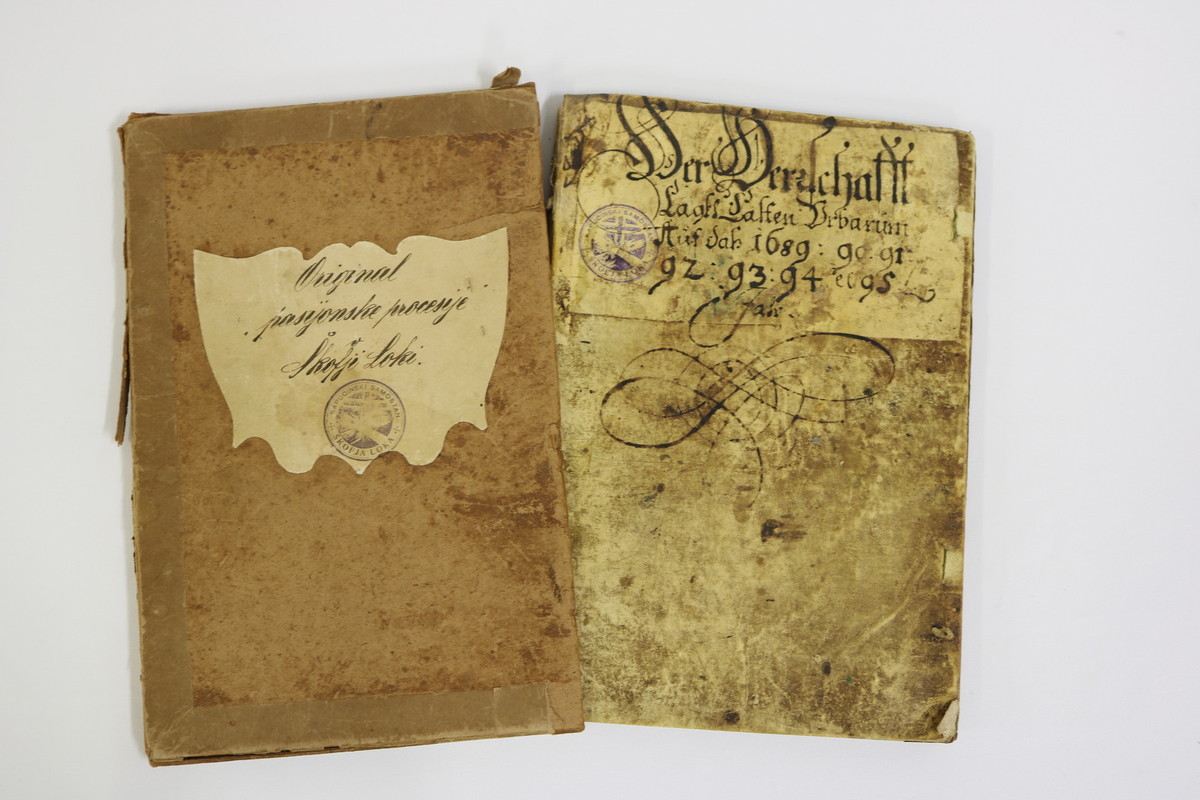 Original
pasijonske procesije
Škofji Loki.
KAPUCINSKI SAMOSTAN
ŠKOFJA LOKA
Der Herrschafft
Kasten Urbarium
Auf daß 1689: 90: 91:
92: 93: 94 et 95
Jahr.